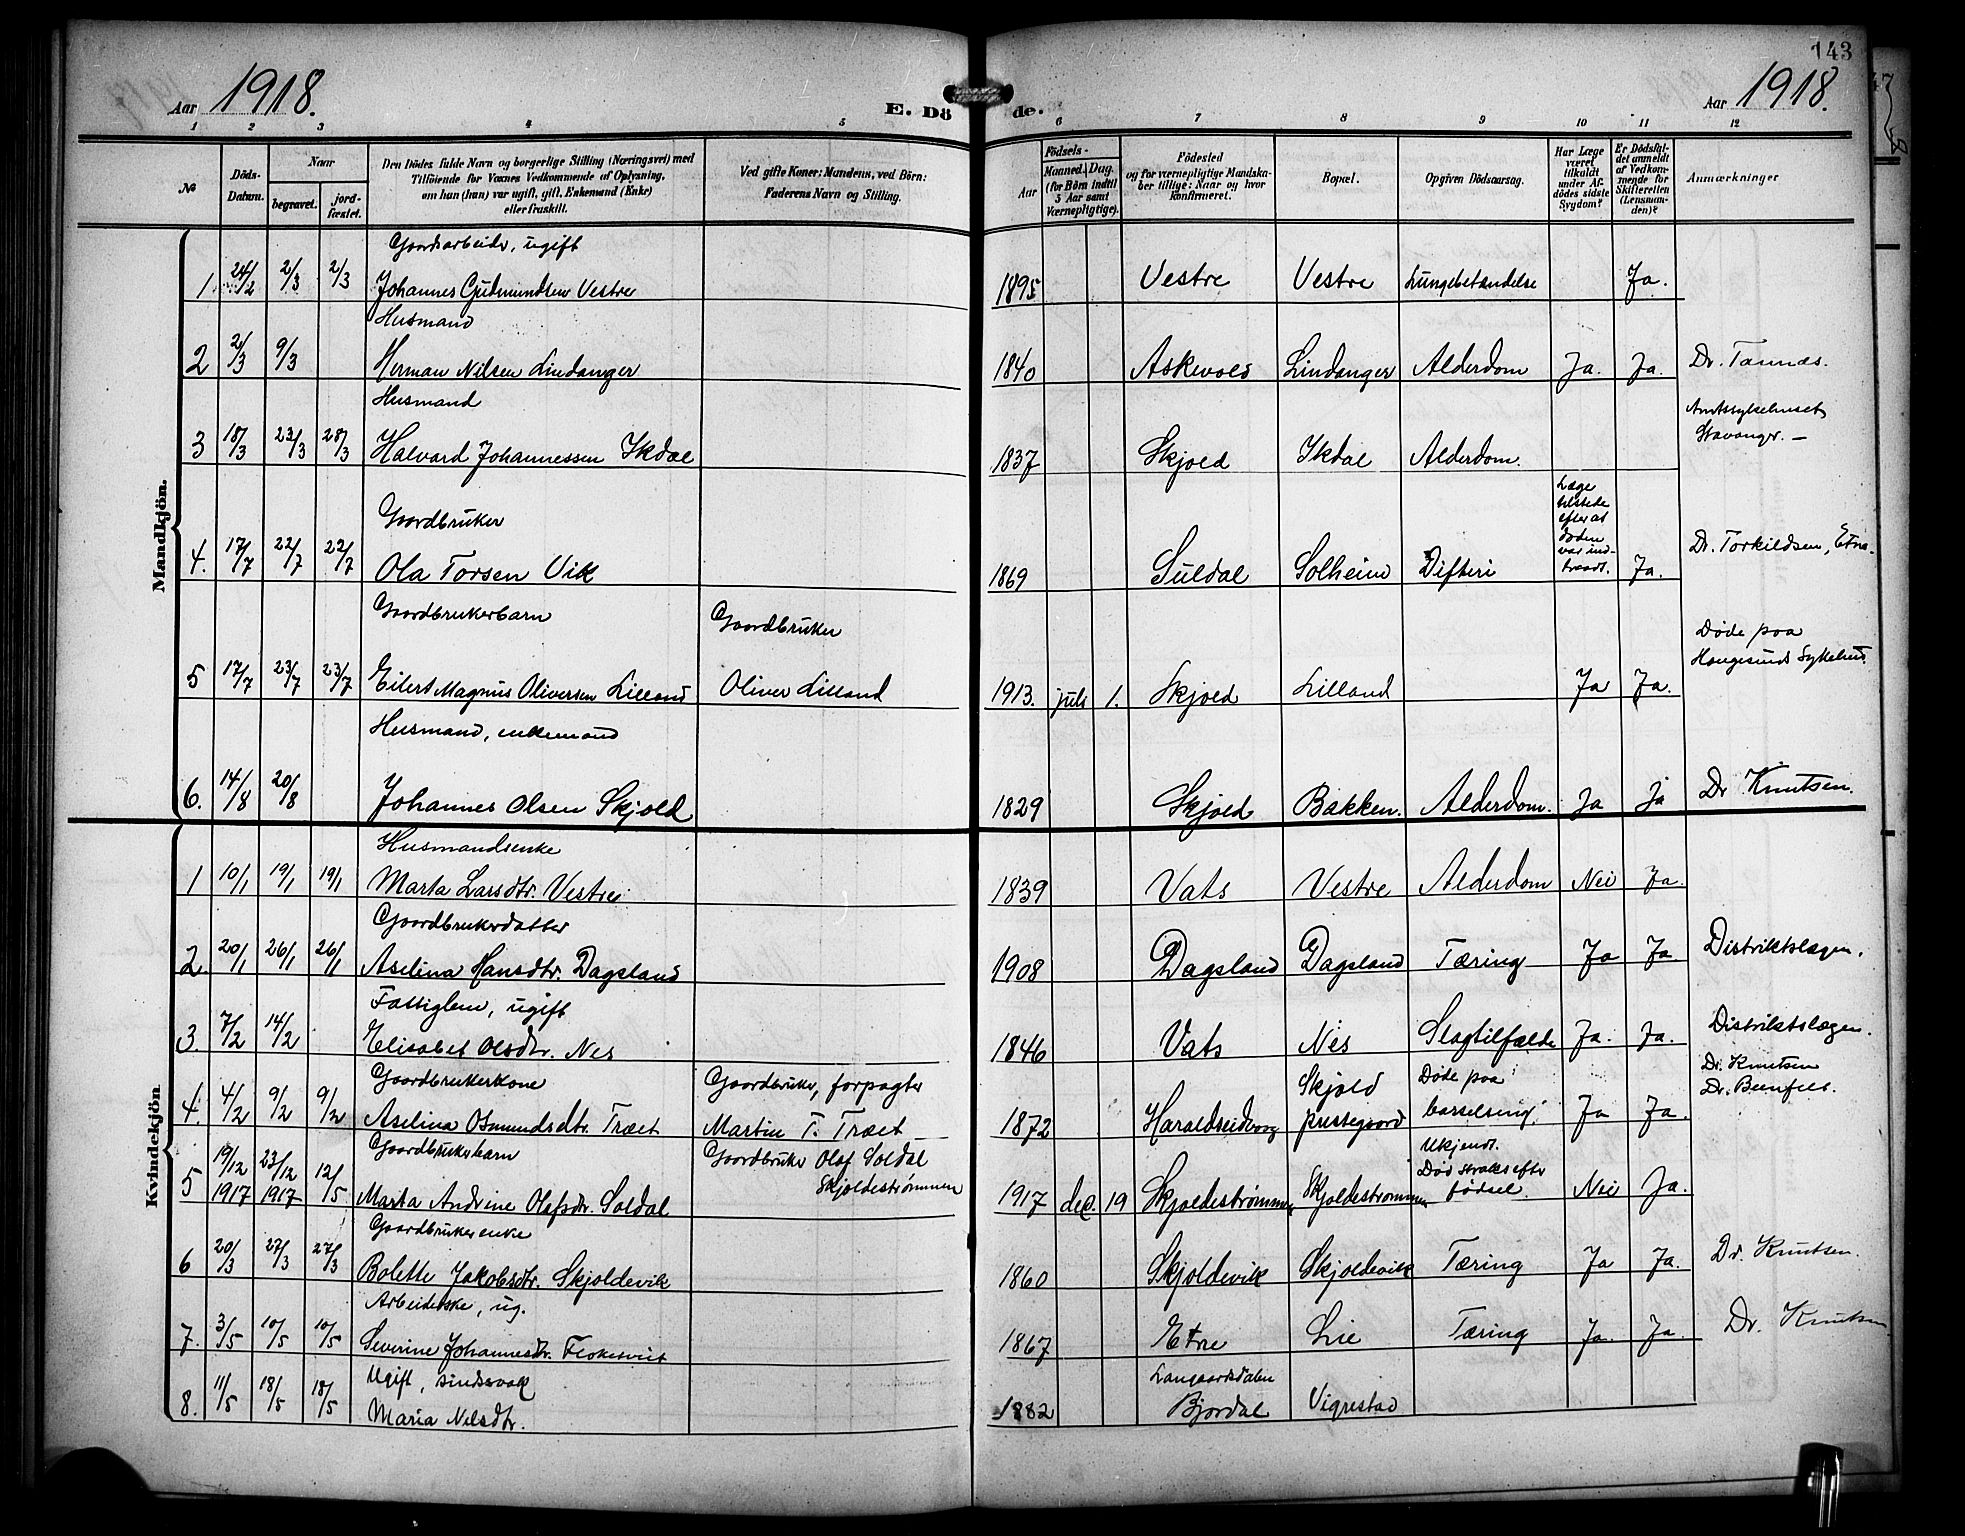 143
Aar 1918.
E. Döde.
Aar 1918.
1 2 3 4 5 6 7 8 9 10 11 12
№
Döds-
Datum.
Naar
begravet.
jord-
fæstet.
Den Dödes fulde Navn og borgerlige Stilling (Næringsvei) med
Tilföiende for Voxnes Vedkommende af Oplysning,
om han (hun) var ugift, gift, Enkemand (Enke)
eller fraskilt.
Ved gifte Koner: Mandens, ved Börn:
Faderens Navn og Stilling.
Aar
Födsels-
Maaned. Dag.
(for Börn indtil
5 Aar samt
Værnepligtige).
Födested
og for værnepligtige Mandska-
ber tillige: Naar og hvor
konfirmeret.
Bopæl.
Opgiven Dödsaarsag.
Har Læge
været
tilkaldt
under Af-
dödes sidste
Sygdom?
Er Dödsfal-
det anmeldt
af Vedkom-
mende for
Skifteretten
(Lensman-
den)?
Anmærkninger
Mandkjön.
Gaardsarbeider, ugift
1 24/2 2/3 2/3 Johannes Gudmundsen Vestre 1895 Vestre Vestre Lungebetændelse Ja.
Husmand
2 2/3 9/3 Herman Nilsen Lindanger 1840 Askvold Lindanger Alderdom Ja. Ja. Dr. Tannæs.
Husmand
Amtssykehuset
Stavanger. —
3 18/3 23/3 28/3 Halvard Johannessen Ikdal 1837 Skjold Ikdal Alderdom.
Gaardbruker
Læge
tilstede
efter at
døden
var ind-
traadt.
4. 17/7 22/7 22/7 Ola Torsen Vik 1869 Suldal Solheim Difteri Ja. Dr. Torkildsen, Etne.
Gaardbrukerbarn Gaardbruker
Døde paa
Haugesunds Sykehus.
5 17/7 23/7 23/7 Eilert Magnus Oliversen Lilland Oliver Lilland 1913. juli 1. Skjold Lilland Ja Ja.
Husmand, enkemand
6. 14/8 20/8 Johannes Olsen Skjold 1829 Skjold Bakken. Alderdom. Ja ja Dr Knutsen.
Kvindekjön
Husmandsenke
1 10/1 19/1 19/1 Marta Larsdtr. Vestre 1839 Vats Vestre Alderdom Nei Ja.
Gaardbrukerdatter
2. 20/1 26/1 26/1 Aselina Hansdtr. Dagsland 1908 Dagsland Dagsland Tæring Ja Ja. Distriktslægen.
Fattiglem, ugift
3. 7/2 14/2 Elisabet Olsdtr. Nes 1846 Vats Nes Slagtilfælde Ja. Ja. Distriktslægen.
Gaardbrukerkone Gaardbruker, forpagter Skjold Døde paa Dr. Knutsen
4. 4/2 9/2 9/2 Aselina Osmundsdtr. Træet Martin T. Træet 1872 Haraldseidvaag prestegaard barselseng. Ja Ja. Dr.
Gaardbrukerbarn Gaardbruker Olaf Soldal
Skjoldestrømmen
Ukjendt.
Død straks efter
fødsel.
5 19/12 1917 23/12 1917 12/5 Marta Andrine Olafsdr. Soldal 1917 dec. 19 Skjoldestrømmen Skjoldestrømmen Nei Ja.
Gaardbrukerenke
6 20/3 27/3 27/3 Bolette Jakobsdtr. Skjoldevik 1860 Skjoldevik Skjoldevik Tæring Ja Ja. Dr. Knutsen.
Arbeiderske, ug.
7. 3/5 10/5 10/5 Severine Johannesdtr. 1867 Etne Lie Tæring Ja. Ja. Dr. Knutsen.
Ugift, sindssvak Langaardsdalen
8. 11/5 18/5 18/5 Maria Nilsdtr. 1882 Bjordal Vigrestad